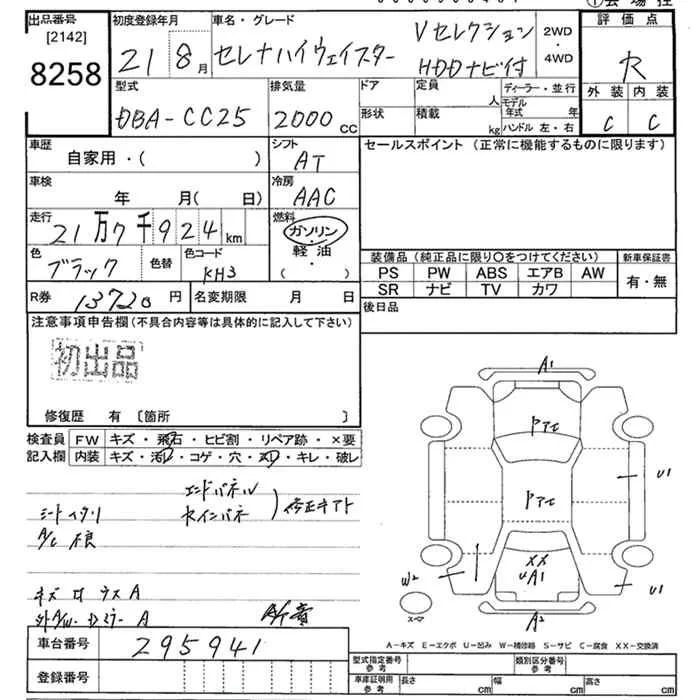 出品番号
[2142]
8258
初度登録年月
21 8月
車名・グレード
セレナハイウェイスター
Vセレクション
HDDナビ付
2WD
・
4WD
評価点
R
外装 内装
C C
型式
DBA-CC25
排気量
2000 cc
ドア
定員
人
ディーラー・並行
モデル年式 年
形状
積載
kg
ハンドル 左・右
車歴
自家用・( )
シフト
AT
セールスポイント (正常に機能するものに限ります)
車検
年 月( 日)
冷房
AAC
走行
21万7千924km
燃料
ガソリン
・
軽油
( )
色
ブラック
色替
色コード
KH3
装備品(純正品に限り○をつけてください)
新車保証書
PS PW ABS エアB AW
SR ナビ TV カワ
有・無
R券 13720円
名変期限 月 日
後日品
注意事項申告欄(不具合内容等は具体的に記入して下さい)
初出品
修復歴 有 〔箇所 〕
検査員記入欄
FW キズ・飛石・ヒビ割・リペア跡・×要
内装 キズ・汚レ・コゲ・穴・スレ・キレ・破レ
エンドパネル
A/C 不良
A1
U1
XX
UA1
W2
U1
A2
スペア
A-キズ E-エクボ U-凹み W-補修跡 S-サビ C-腐食 XX-交換済
車台番号 295941
登録番号
型式指定番号 参考
類別区分番号 参考
車庫証明用 参考
長さ cm
幅 cm
高さ cm